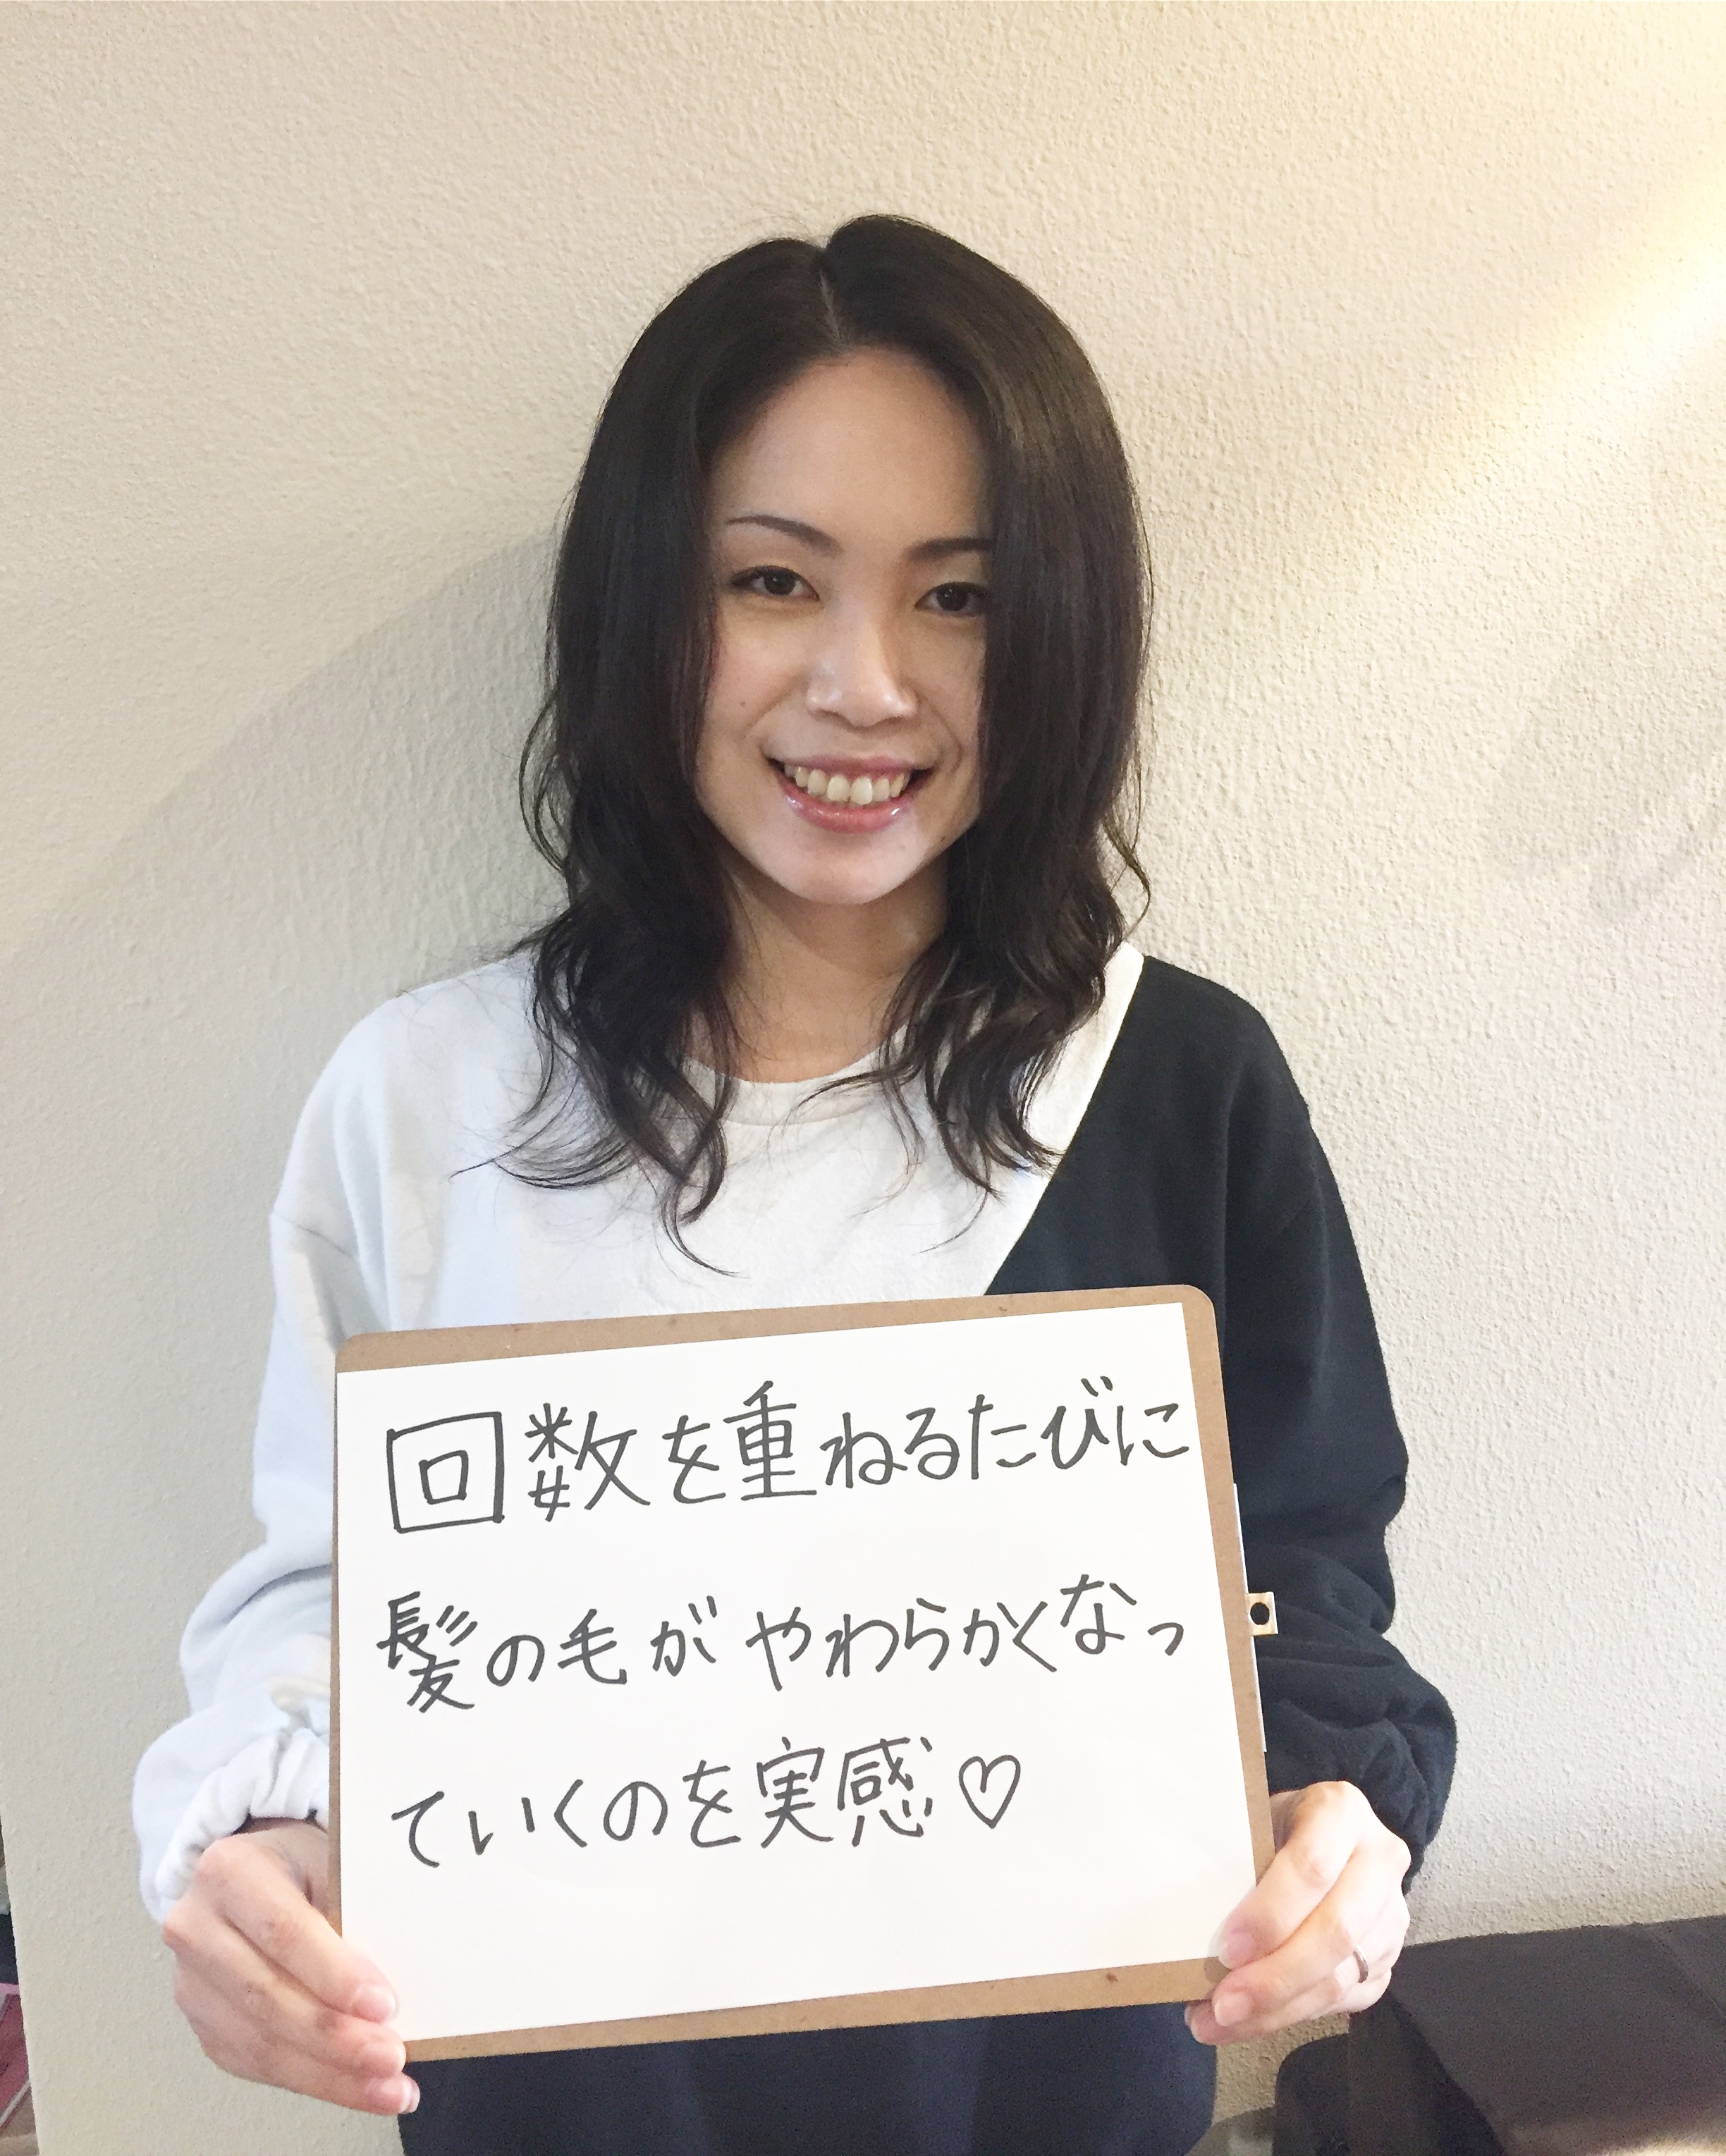 回数を重ねるたびに
髪の毛がやわらかくなっ
ていくのを実感♡